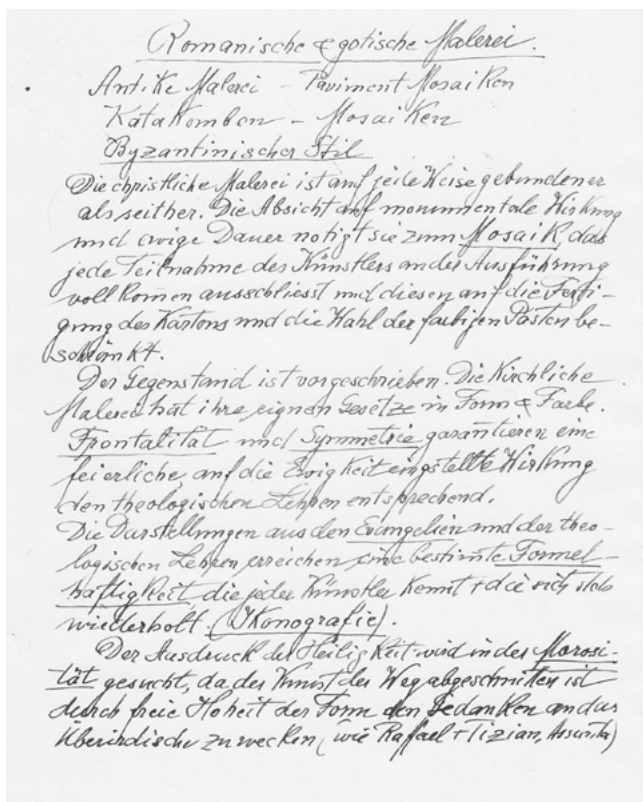 Romanische & gotische Malerei.
Antike Malerei – Paviment Mosaiken
Katakomben – Mosaiken
Byzantinischer Stil
Die christliche Malerei ist auf jede Weise gebundener
als seither. Die Absicht auf monumentale Wirkung
und ewige Dauer notigt sie zum Mosaik, das
jede Teilnahme des Künstlers an der Ausführung
vollkomen ausschliesst und diesen auf die Ferti-
gung des Kartons und die Wahl der farbigen Pasten be-
schränkt.
Der Gegenstand ist vorgeschrieben. Die Kirchliche
Malerei hat ihre eignen Gesetze in Form & Farbe.
Frontalität und Symmetrie garantieren eine
feierliche, auf die Ewigkeit eingstellte Wirkung
den theologischen Lehren entsprechend.
Die Darstellungen aus den Evangelien und der theo-
logischen Lehren erreichen eine bestimte Formel-
haftigkeit, die jeder Künstler kennt + die sich stets
wiederholt. (Ikonografie).
Der Ausdruck der Heiligkeit wird in der Morosi-
tät gesucht, da der Kunst der Weg abgeschnitten ist
durch freie Hoheit der Form den Gedanken an das
Überirdische zu wecken (wie Raffael + Tizian, Assunta)